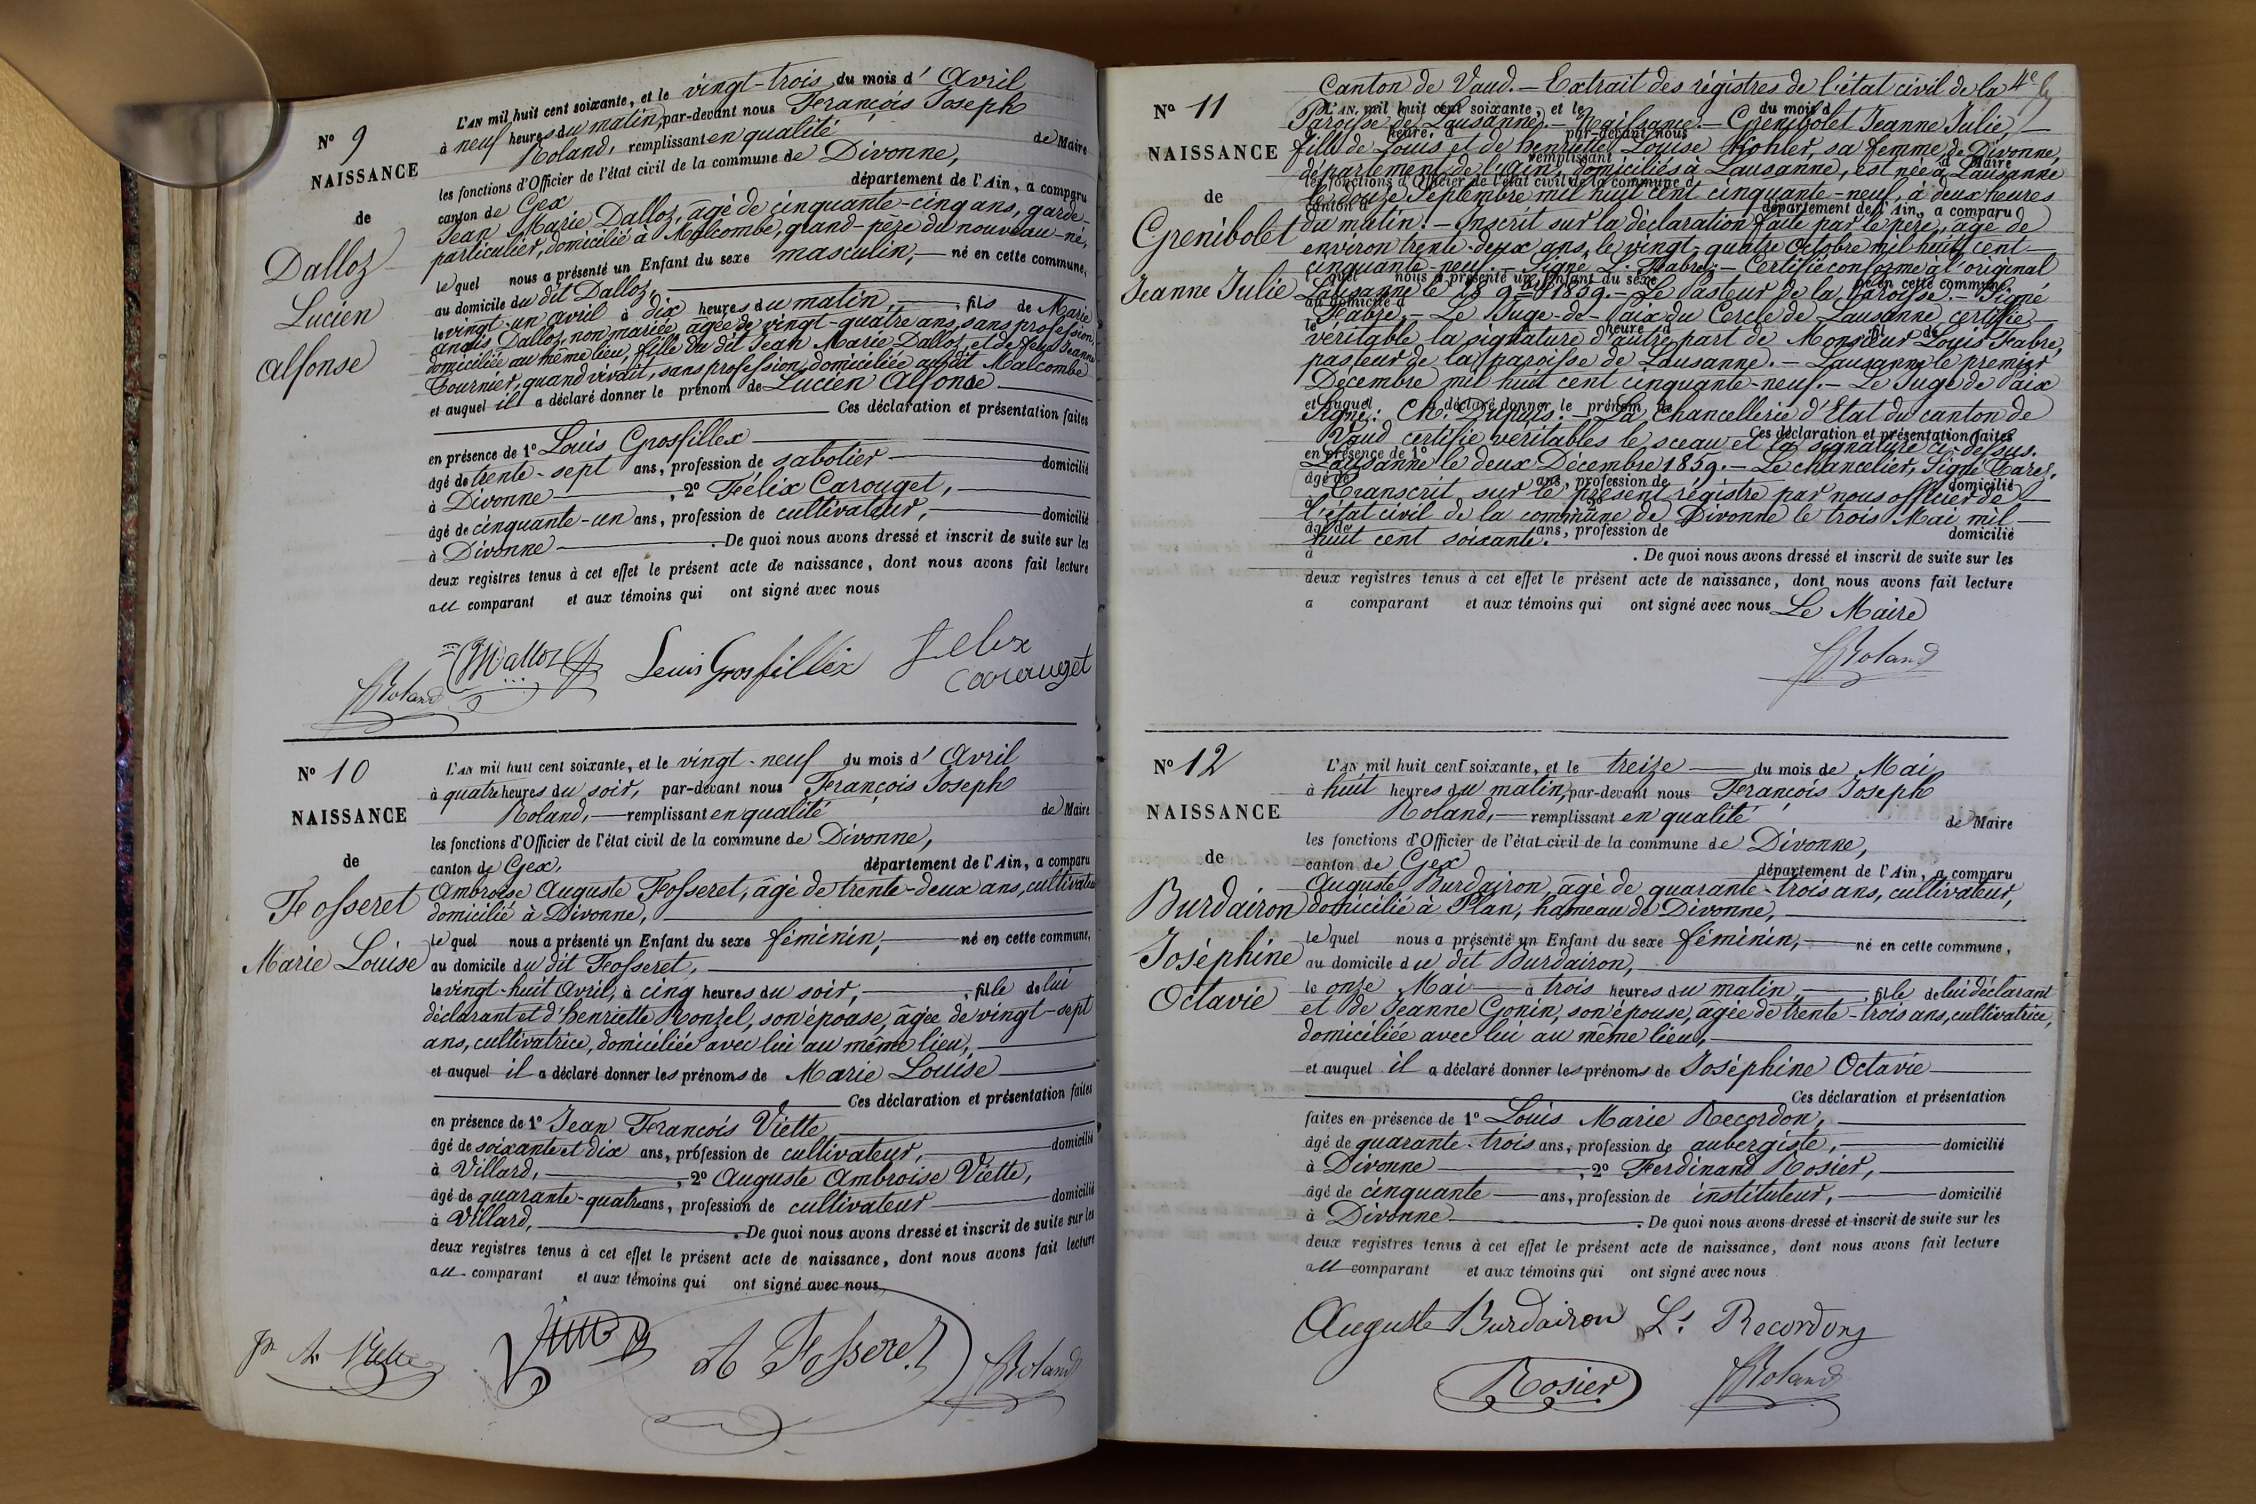 N.º 9
NAISSANCE
de
Dalloz
Lucien
Alfonse
L'AN mil huit cent soixante, et le vingt-trois du mois d' Avril
à neuf heures du matin, par-devant nous François Joseph
Roland, remplissant en qualité de Maire
les fonctions d'Officier de l'état civil de la commune de Divonne,
canton de Gex département de l'Ain, a comparu
Jean Marie Dalloz, âgé de cinquante-cinq ans, garde-
particulier, domicilié à Malcombe, grand-père du nouveau-né,
lequel nous a présenté un Enfant du sexe masculin, né en cette commune,
au domicile du dit Dalloz,
le vingt-un avril à dix heures du matin, fils de Marie
Anaïs Dalloz, non mariée, âgée de vingt-quatre ans, sans profession,
domiciliée au même lieu, fille du dit Jean Marie Dalloz, et de feue Jeanne
Tournier, quand vivait, sans profession, domiciliée au dit Malcombe
et auquel il a déclaré donner le prénom de Lucien Alfonse
Ces déclaration et présentation faites
en présence de 1º Louis Grosfillex
âgé de trente-sept ans, profession de sabotier domicilié
à Divonne, 2º Félix Carouget,
âgé de cinquante-un ans, profession de cultivateur, domicilié
à Divonne. De quoi nous avons dressé et inscrit de suite sur les
deux registres tenus à cet effet le présent acte de naissance, dont nous avons fait lecture
au comparant et aux témoins qui ont signé avec nous
Dalloz Louis Grosfillex Felix Carouget
Roland
N.º 10
NAISSANCE
de
Fosseret
Marie Louise
L'AN mil huit cent soixante, et le vingt-neuf du mois d' Avril
à quatre heures du soir, par-devant nous François Joseph
Roland, remplissant en qualité de Maire
les fonctions d'Officier de l'état civil de la commune de Divonne,
canton de Gex, département de l'Ain, a comparu
Ambroise Auguste Fosseret, âgé de trente-deux ans, cultivateur
domicilié à Divonne,
lequel nous a présenté un Enfant du sexe féminin, né en cette commune,
au domicile du dit Fosseret,
le vingt-huit Avril, à cinq heures du soir, fille de lui
déclarant et d'henriette Ronzel, son épouse, âgée de vingt-sept
ans, cultivatrice, domiciliée avec lui au même lieu,
et auquel il a déclaré donner les prénoms de Marie Louise
Ces déclaration et présentation faites
en présence de 1º Jean François Viette
âgé de soixante et dix ans, profession de cultivateur, domicilié
à Villard, 2º Auguste Ambroise Viette,
âgé de quarante-quatre ans, profession de cultivateur domicilié
à Villard, . De quoi nous avons dressé et inscrit de suite sur les
deux registres tenus à cet effet le présent acte de naissance, dont nous avons fait lecture
au comparant et aux témoins qui ont signé avec nous
Viette A Fosseret Roland
N.º 11
NAISSANCE
de
Grenibolet
Jeanne Julie
Canton de Vaud. – Extrait des régistres de l'état civil de la 4e
L'AN mil huit cent soixante, et le du mois d
Paroisse de Lausanne. – Naissance. – Grenibolet Jeanne Julie,
heure d par-devant nous
fille de Louis et de henriette Louise Kohler, sa femme, de Divonne,
remplissant d Maire
département de l'Ain, domiciliés à Lausanne, est née à Lausanne
les fonctions d'Officier de l'état civil de la commune d
le onze Septembre mil huit cent cinquante-neuf, à deux heures
canton d département de l'Ain, a comparu
du matin. – Inscrit sur la déclaration faite par le père, âgé de
environ trente-deux ans, le vingt-quatre Octobre mil huit cent
cinquante-neuf. – Signé L. Fabre. – Certifié conforme à l'original
quel nous a présenté un Enfant du sexe né en cette commune,
Lausanne le 18 9bre 1859. – Le Pasteur de la Paroisse. – Signé
au domicile d
Fabre. – Le Juge-de-Paix du Cercle de Lausanne certifie
le à heure d fil de
véritable la signature d'autre part de Monsieur Louis Fabre,
pasteur de la paroisse de Lausanne. – Lausanne le premier
Décembre mil huit cent cinquante-neuf. – Le Juge de Paix
et auquel a déclaré donner le prénom de
Signé: Ch. Dapples. – La Chancellerie d'Etat du canton de
Vaud certifie véritables le sceau et la signature ci-dessus.
Ces déclaration et présentation faites
en présence de 1º
Lausanne le deux Décembre 1859. – Le chancelier, Signé Carey.
âgé de ans, profession de domicilié
Transcrit sur le présent régistre par nous officier de
à 2º
l'état civil de la commune de Divonne le trois Mai mil
âgé de ans, profession de domicilié
huit cent soixante.
à . De quoi nous avons dressé et inscrit de suite sur les
deux registres tenus à cet effet le présent acte de naissance, dont nous avons fait lecture
a comparant et aux témoins qui ont signé avec nous Le Maire
Roland
N.º 12
NAISSANCE
de
Burdairon
Joséphine
Octavie
L'AN mil huit cent soixante, et le treize du mois de Mai
à huit heures du matin, par-devant nous François Joseph
Roland, remplissant en qualité de Maire
les fonctions d'Officier de l'état civil de la commune de Divonne,
canton de Gex département de l'Ain, a comparu
Auguste Burdairon, âgé de quarante-trois ans, cultivateur,
domicilié à Plan, hameau de Divonne,
lequel nous a présenté un Enfant du sexe féminin, né en cette commune,
au domicile du dit Burdairon,
le onze Mai à trois heures du matin, fille de lui déclarant
et de Jeanne Gonin, son épouse, âgée de trente-trois ans, cultivatrice,
domiciliée avec lui au même lieu,
et auquel il a déclaré donner les prénoms de Joséphine Octavie
Ces déclaration et présentation
faites en présence de 1º Louis Marie Recordon,
âgé de quarante-trois ans, profession de aubergiste, domicilié
à Divonne, 2º Ferdinand Rosier,
âgé de cinquante ans, profession de instituteur, domicilié
à Divonne. De quoi nous avons dressé et inscrit de suite sur les
deux registres tenus à cet effet le présent acte de naissance, dont nous avons fait lecture
au comparant et aux témoins qui ont signé avec nous
Auguste Burdairon Ls Recordon
Rosier Roland